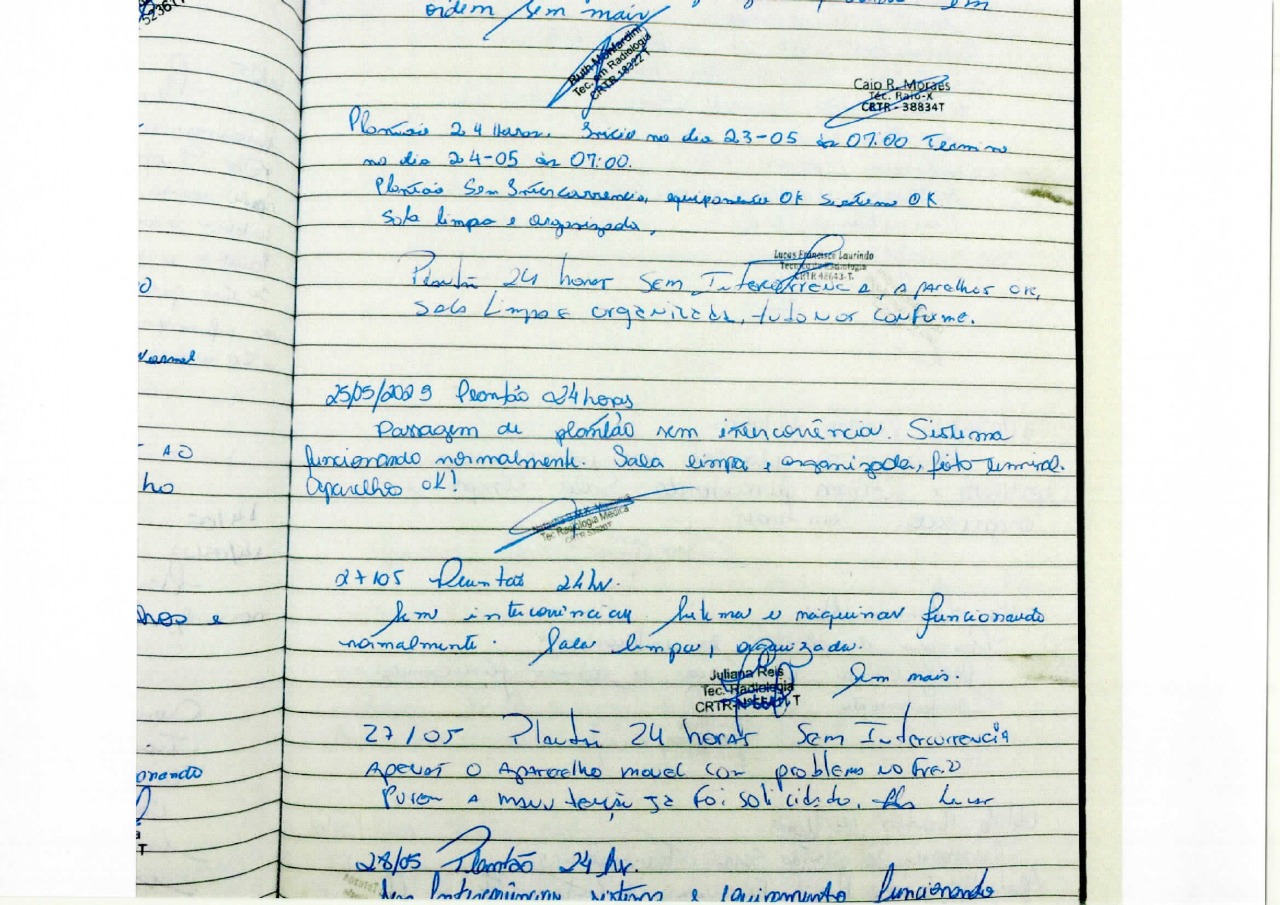 5236
ordem sem mais
Ruth Monfardini
Tec. em Radiologia
CRTR 18322T
Caio R. Moraes
Téc. Raio-X
CRTR - 38834T
Plantão 24 Horas. Início no dia 23-05 às 07:00 Termino
no dia 24-05 às 07:00.
Plantão Sem Intercorrencia, equipamento OK Sistema OK
Sala limpa e organizada,
Lucas Francisco Laurindo
Técnico de Radiologia
CRTR 48643-T
Plantão 24 horas Sem Intercorrencia, Aparelhos OK,
Sala Limpa e organizada, tudo nos conforme.
Normal
25/05/2025 Plantão 24 horas
Passagem de plantão sem intercorrência. Sistema
AO
funcionando normalmente. Sala limpa e organizada, feito terminal.
ho
Aparelhos OK!
Tec Radiologia Médica
27/05 Plantão 24 hr.
hos e
Sem intercorrências. Sistema e maquinas funcionando
normalmente. Sala limpa, organizada.
Juliana Reis
Tec. Radiologia
CRTR-N
T
Sem mais.
27/05 Plantão 24 horas Sem Intercorrencia
onando
Apenas o Aparelho movel com problema no freio
Porem a manutenção ja foi solicidado.
T
28/05 Plantão 24 hr.
Sem Intercorrências sistema e equipamento funcionando